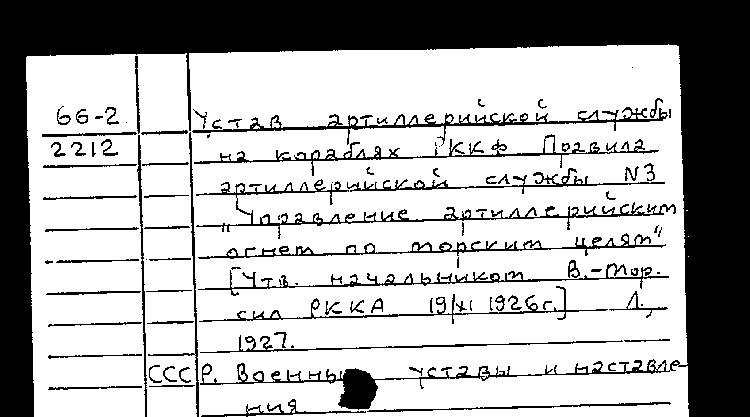 66-2 Устав артиллерийской службы
2212 на кораблях РККФ Правила
артиллерийской службы N3
„Управление артиллерийским
огнем по морским целям“
[Утв. начальником В.-Мор.
сил РККА 19/XI 1926г.] Л.,
1927.
СССР. Военные уставы и наставле-
ния